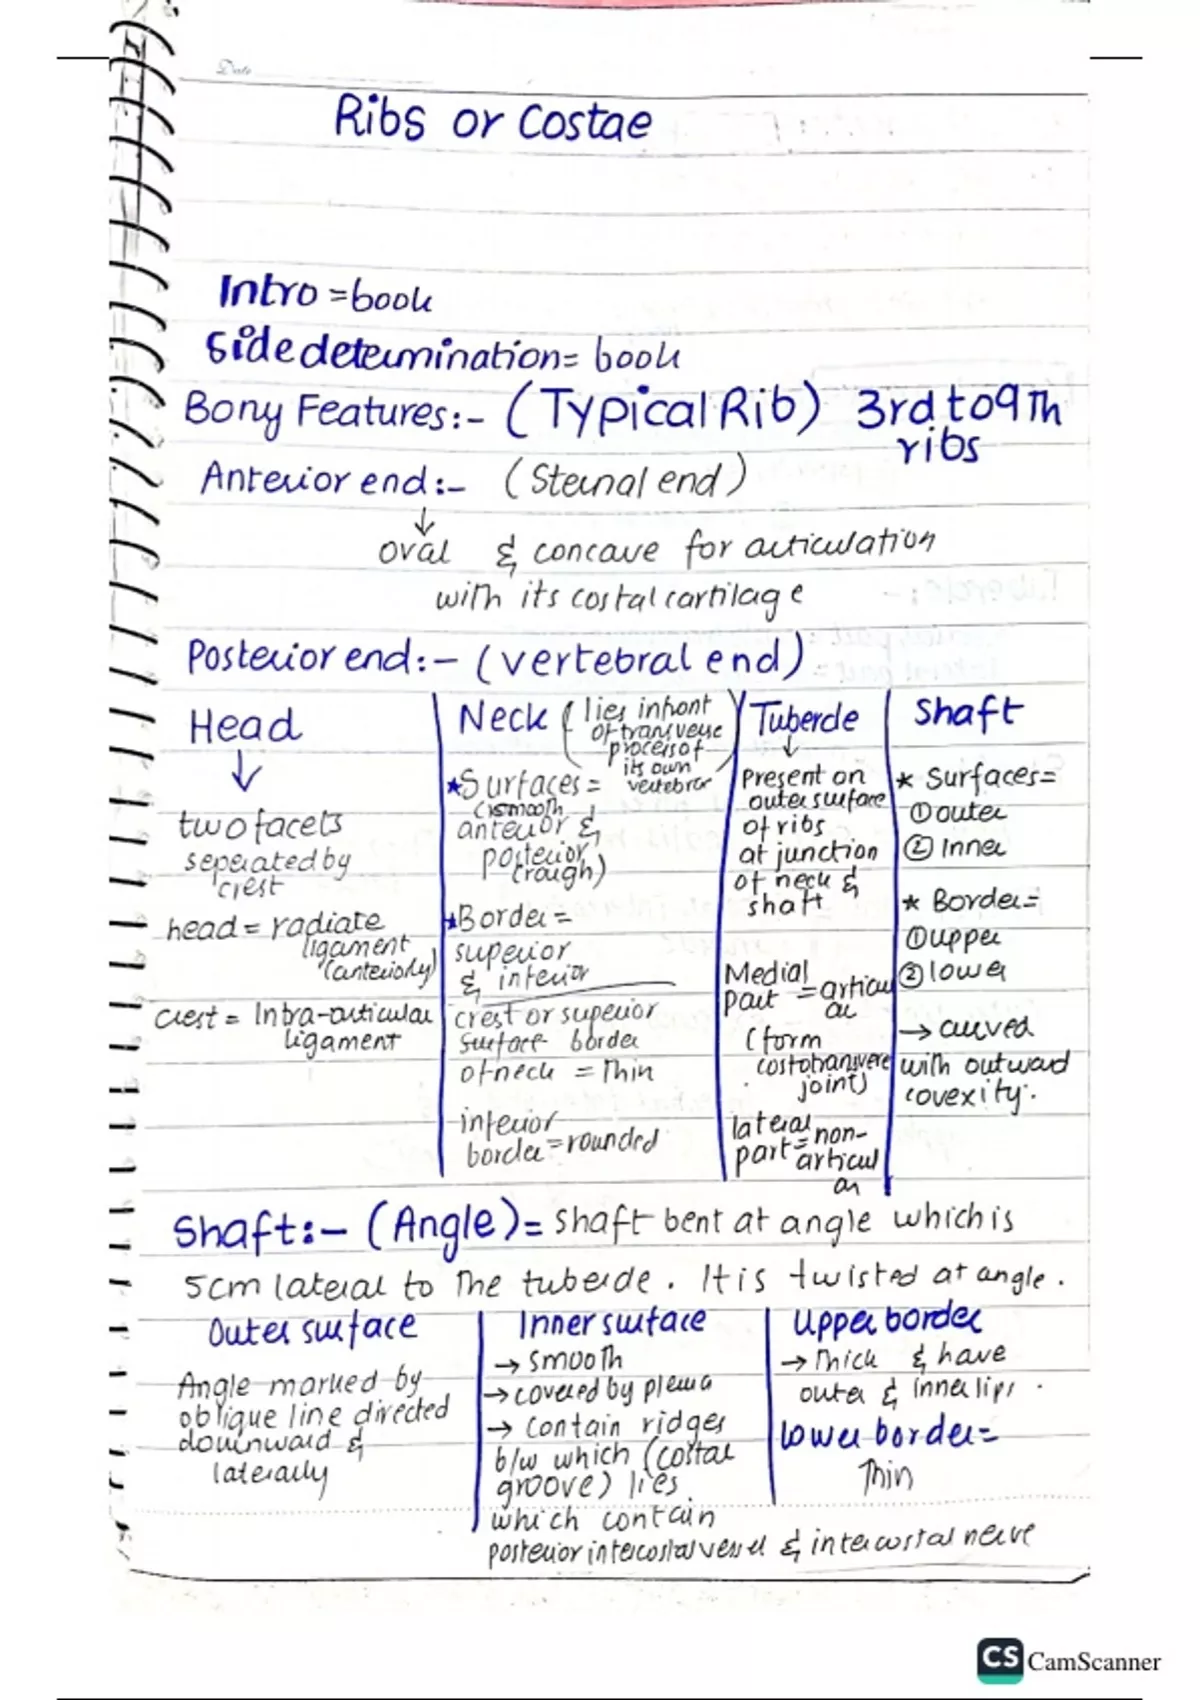 Date
Ribs or Costae
Intro = book
Side determination = book
Bony Features:- (Typical Rib) 3rd to 9th
ribs
Anterior end:- (Sternal end)
↓
oval & concave for articulation
with its costal cartilage
Posterior end:- (vertebral end)
Head
↓
two facets
seperated by
crest
head = radiate
ligament
(anteriorly)
crest = Intra-articular
ligament
Neck (lies infront
of transverse
process of
its own
vertebra)
*Surfaces =
(smooth
anterior &
posterior
(rough)
*Border =
superior
& inferior
crest or superior
surface border
of neck = Thin
inferior
border = rounded
Tubercle
↓
Present on
outer surface
of ribs
at junction
of neck &
shaft
Medial
part = articul
ar
(form
costotransverse
joint)
lateral
part = non-
articul
ar
Shaft
* Surfaces =
① outer
② Inner
* Border =
① upper
② lower
→ curved
with outward
covexity.
Shaft:- (Angle) = shaft bent at angle which is
5cm lateral to The tubercle. It is twisted at angle.
Outer surface
Angle marked by
oblique line directed
downward &
laterally
Inner surface
→ smooth
→ covered by pleura
→ contain ridges
b/w which (costal
groove) lies
which contain
posterior intercostal vessel & intercostal nerve
Upper border
→ Thick & have
outer & inner lips.
Lower border =
Thin
CS CamScanner